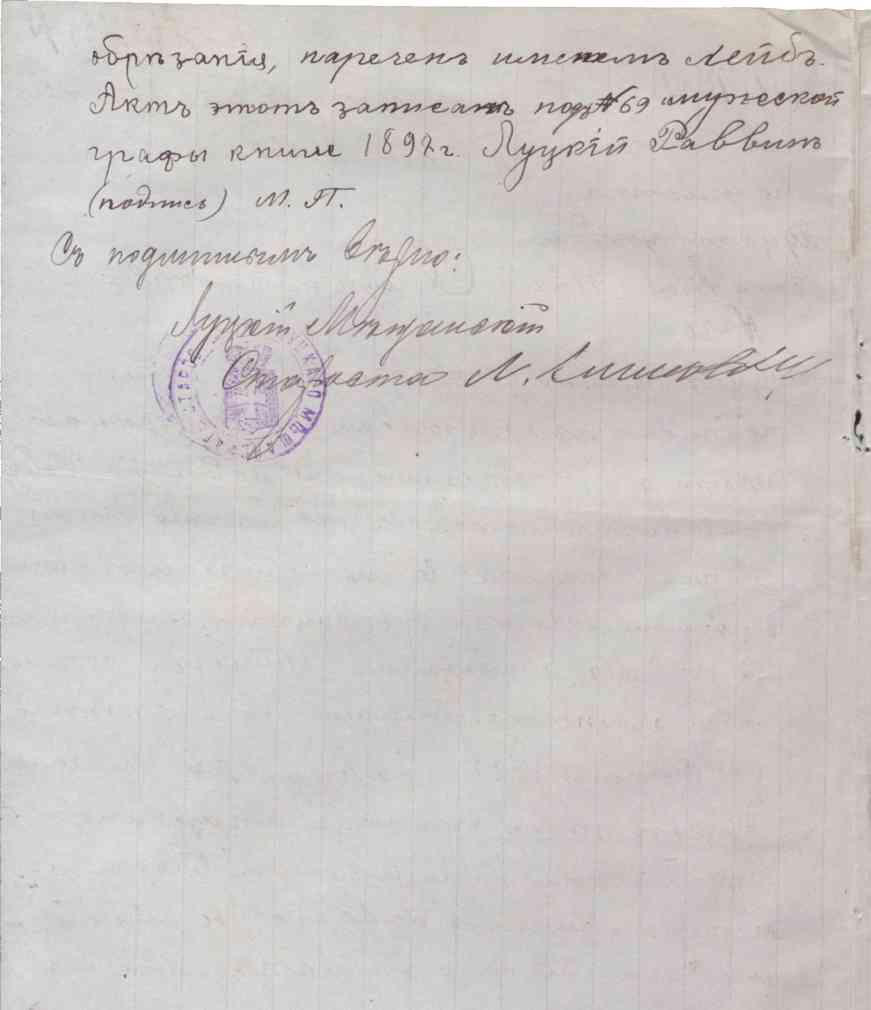 обрѣзанія, нареченъ именемъ Лейбъ.
Актъ этотъ записанъ подъ № 69 мужеской
графы книги 1892 г. Луцкій Раввинъ
(подпись) М. П.
Съ подлиннымъ вѣрно:
Луцкій Мѣщанскій
Староста Л.